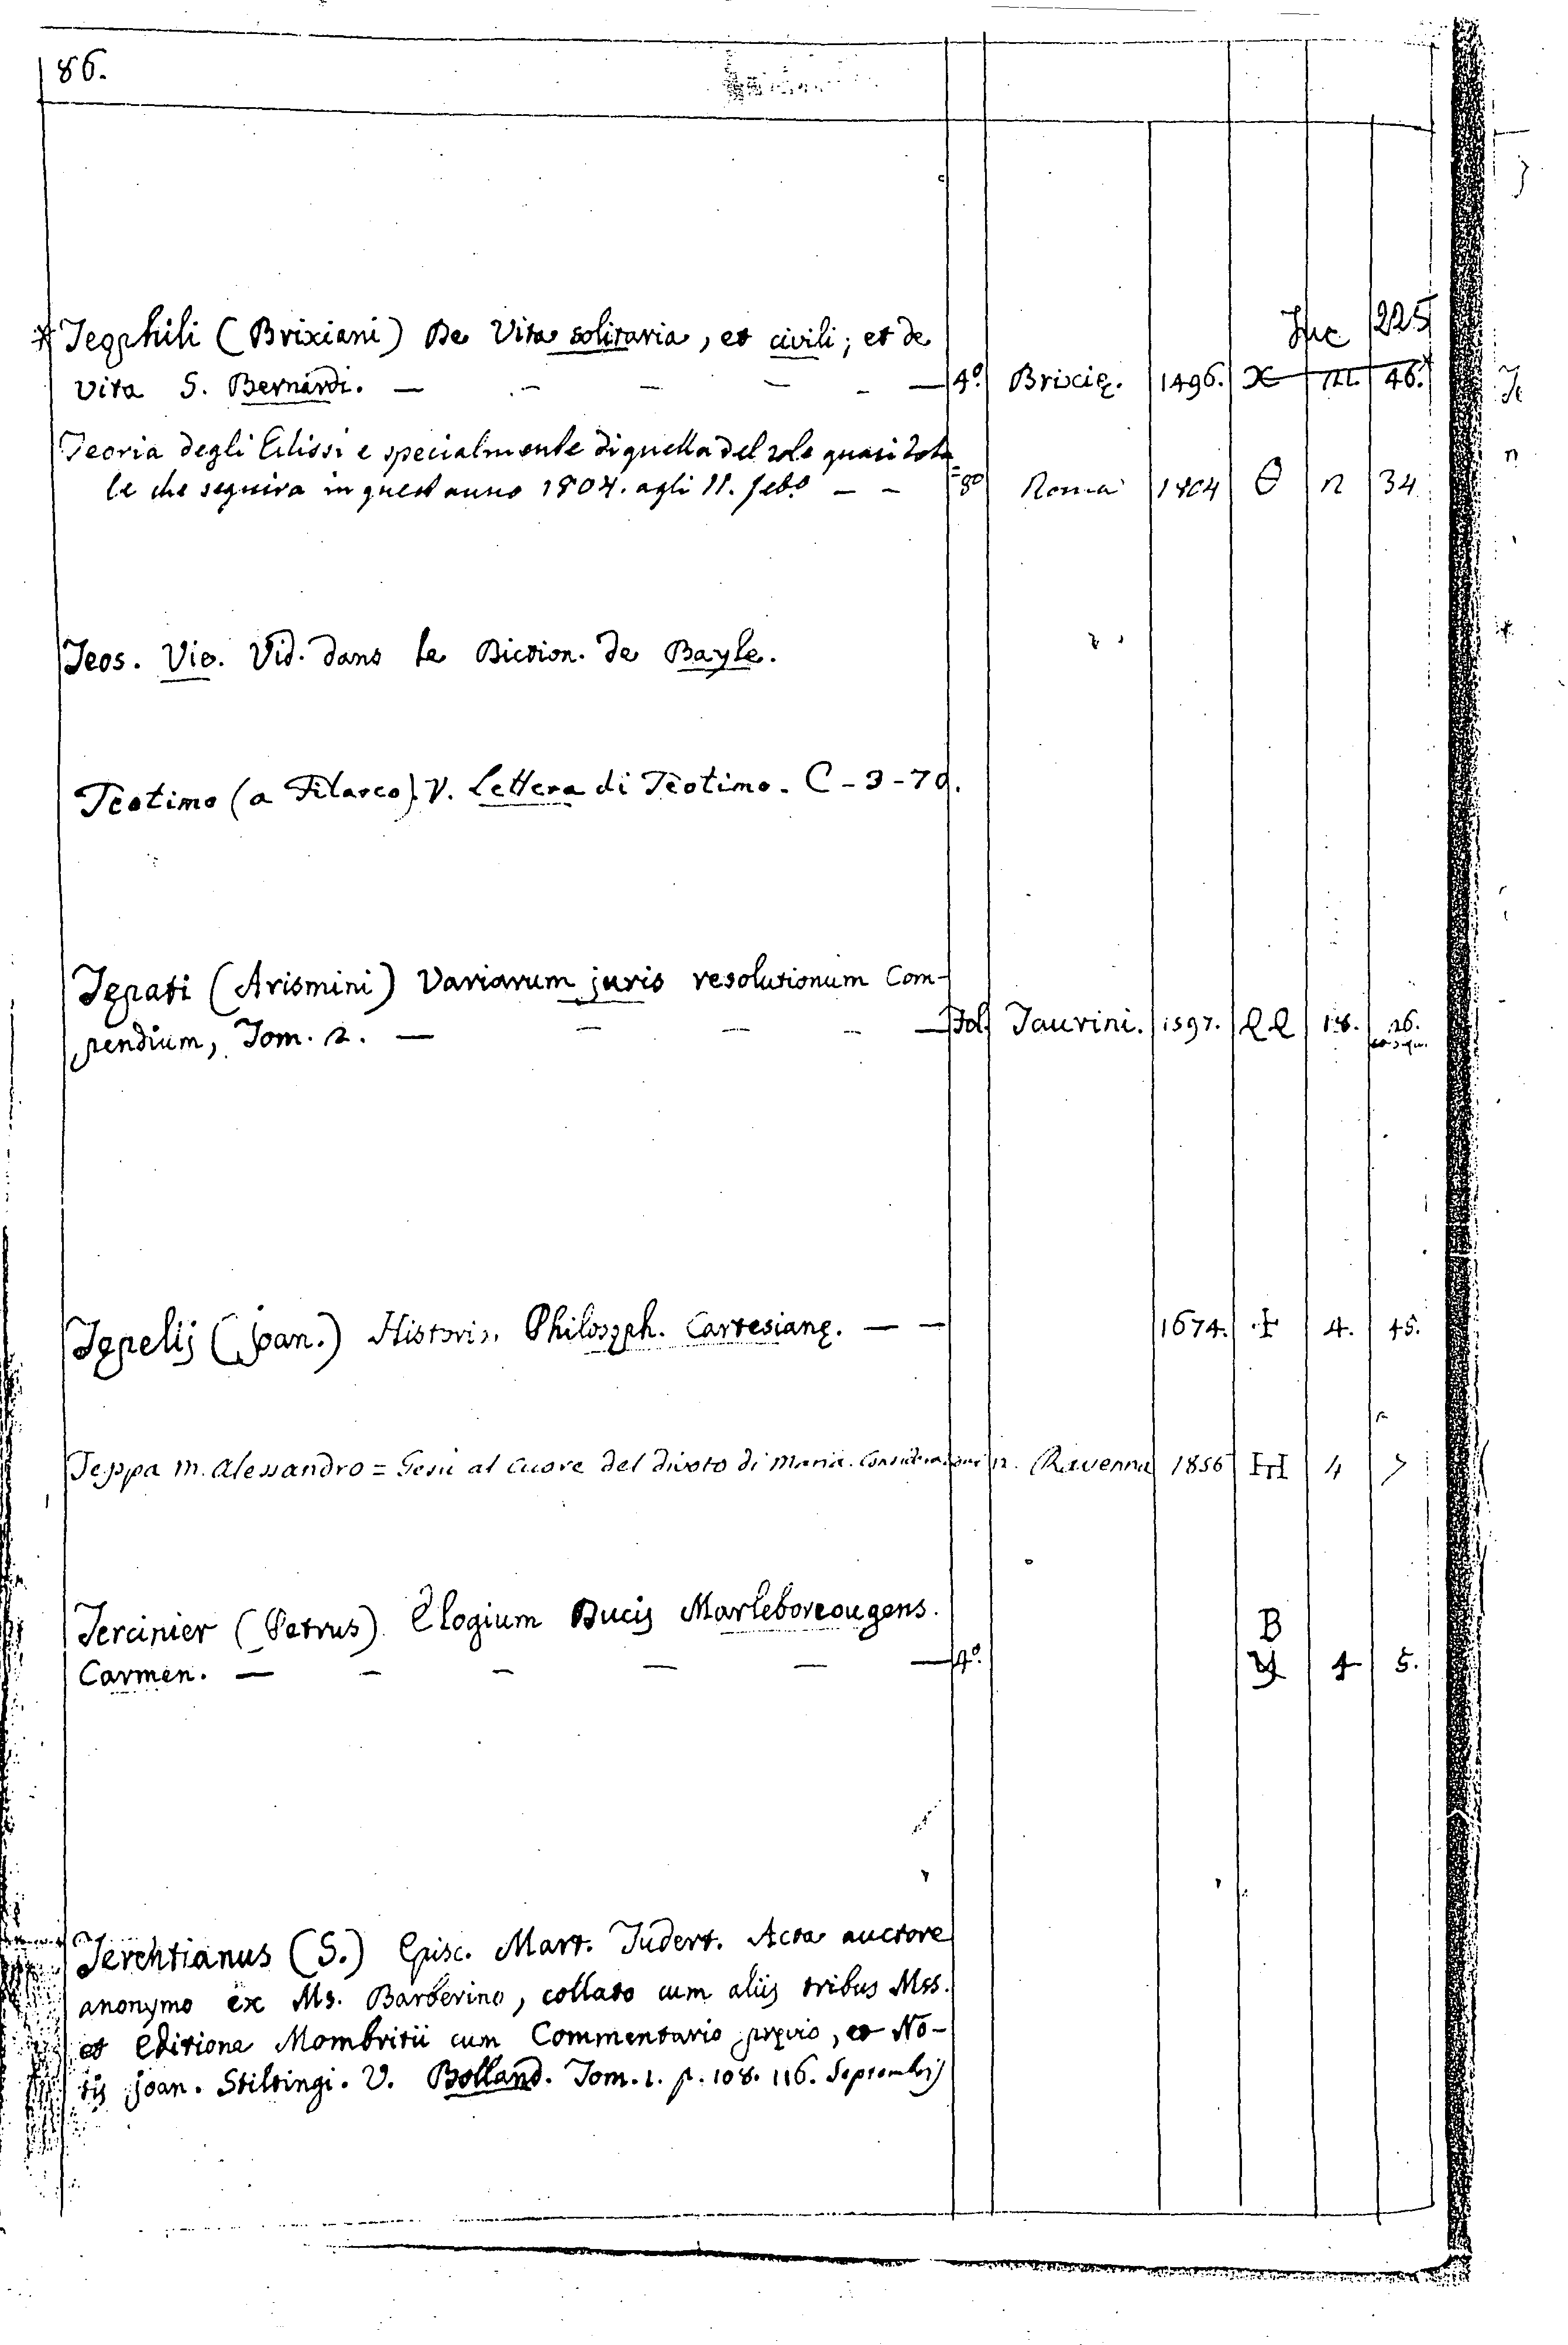 86.
* Teophili (Brixiani) De Vita solitaria, et civili; et de Inc 225
vita S. Bernardi. — — — — — — 4º. Brixię. 1496. X III 46.
Teoria degli Eclissi e specialmente di quella del sole quasi tota
le che seguira in quest anno 1804. agli 11. feb.º — — =8º Roma 1804 Θ n 34
Teos. Vie. Vid. dans le Diction. de Bayle.
Teotimo (a Filarco). V. Lettera di Teotimo. C-3-70.
Tepati (Arismini) Variarum juris resolutionum Com-
pendium, Tom. 2. — — — — — Fol. Taurini. 1597. QQ 18. 26.
Tepelij (joan.) Histori. Philosoph. Cartesianę. — — 1674. I 4. 45.
Teppa M. Alessandro = Gesù al cuore del divoto di Maria. Considerazioni 12. Ravenna 1856 H 4 7
Tercinier (Petrus) Elogium Ducis Marleboreougens. B
Carmen. — — — — — — 4º. 4 5.
Terentianus (S.) Episc. Mart. Tudert. Acta auctore
anonymo ex Ms. Barberino, collato cum aliis tribus Mss.
et Editione Mombritii cum Commentario pręvio, et No-
tis joan. Stiltingi. V. Bolland. Tom. 1. p. 108. 116. Septembris